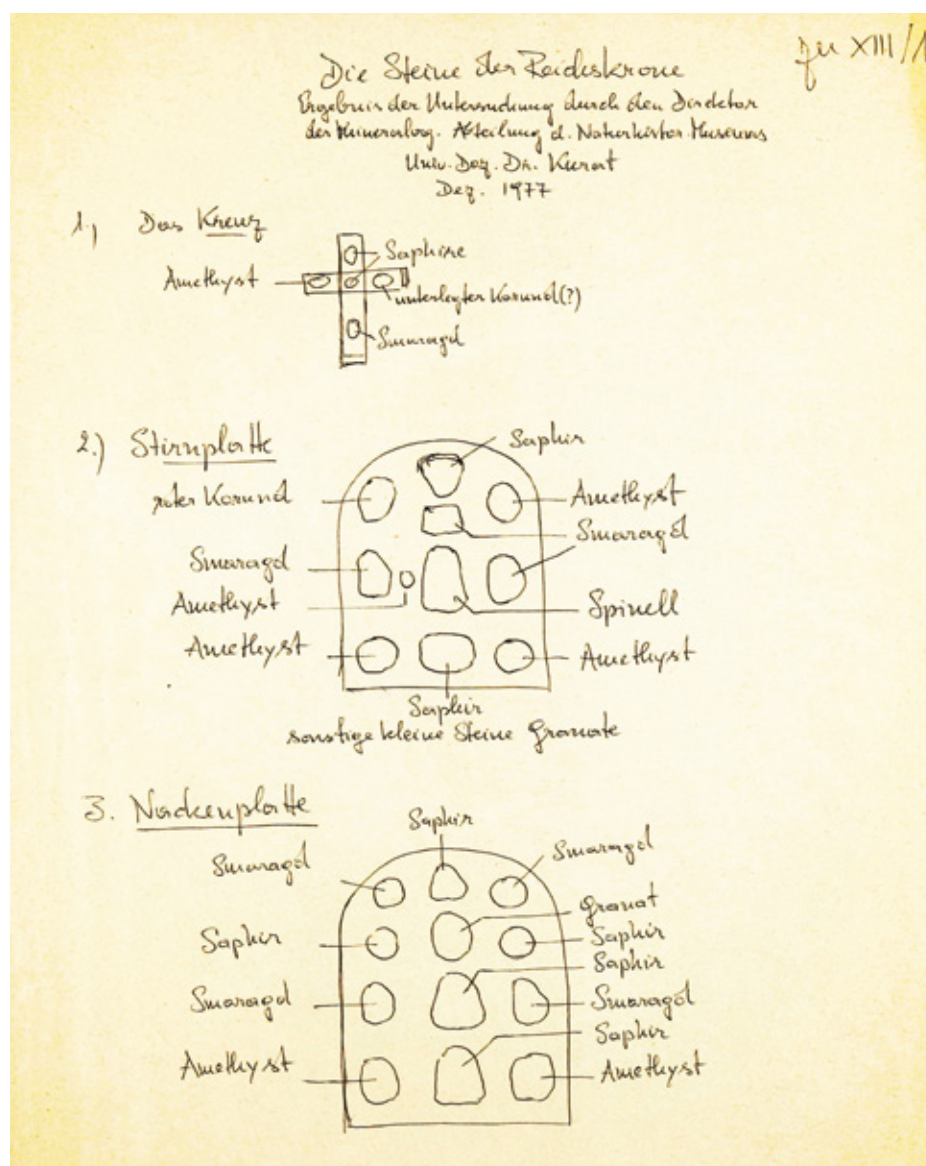 Zu XIII/1
Die Steine der Reichskrone
Ergebnis der Untersuchung durch den Direktor
der Mineralog. Abteilung d. Naturhistor. Museums
Univ. Doz. Dr. Kurat
Dez. 1977
1.) Das Kreuz
Saphire
Amethyst
unterlegter Korund(?)
Smaragd
2.) Stirnplatte
Saphir
roter Korund
Amethyst
Smaragd
Smaragd
Amethyst
Spinell
Amethyst
Amethyst
Saphir
sonstige kleine Steine Granate
3. Nackenplatte
Saphir
Smaragd
Smaragd
Granat
Saphir
Saphir
Saphir
Smaragd
Smaragd
Saphir
Amethyst
Amethyst